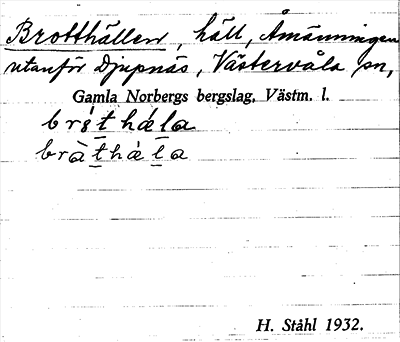 Brotthällen, häll, Åmänningen
utanför Djupnäs, Västervåla sn,
Gamla Norbergs bergslag, Västm. l.
brót hála
bràt hála
H. Ståhl 1932.